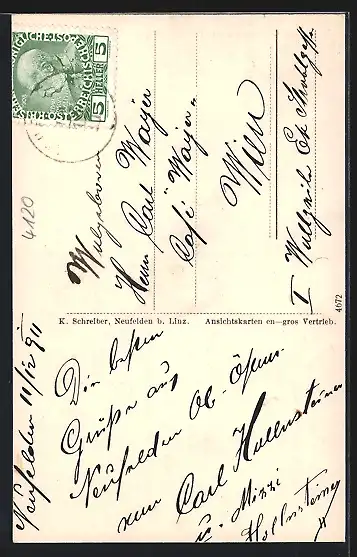 KAISERLICHE KÖNIGLICHE ÖSTERREICHISCHE POST
5 HELLER 5
4120
Wohlgeboren
Herrn Carl Mayer
Café "Mayer"
Wien
I Wollzeile Ek Strobelgasse
4672
K. Schreiber, Neufelden b. Linz. Ansichtskarten en—gros Vertrieb.
Neufelden 11/12 911
Die besten
Grüße aus
Neufelden Ob.-Österr.
von Carl Hollensteiner
u. Mizzi
Hollensteiner